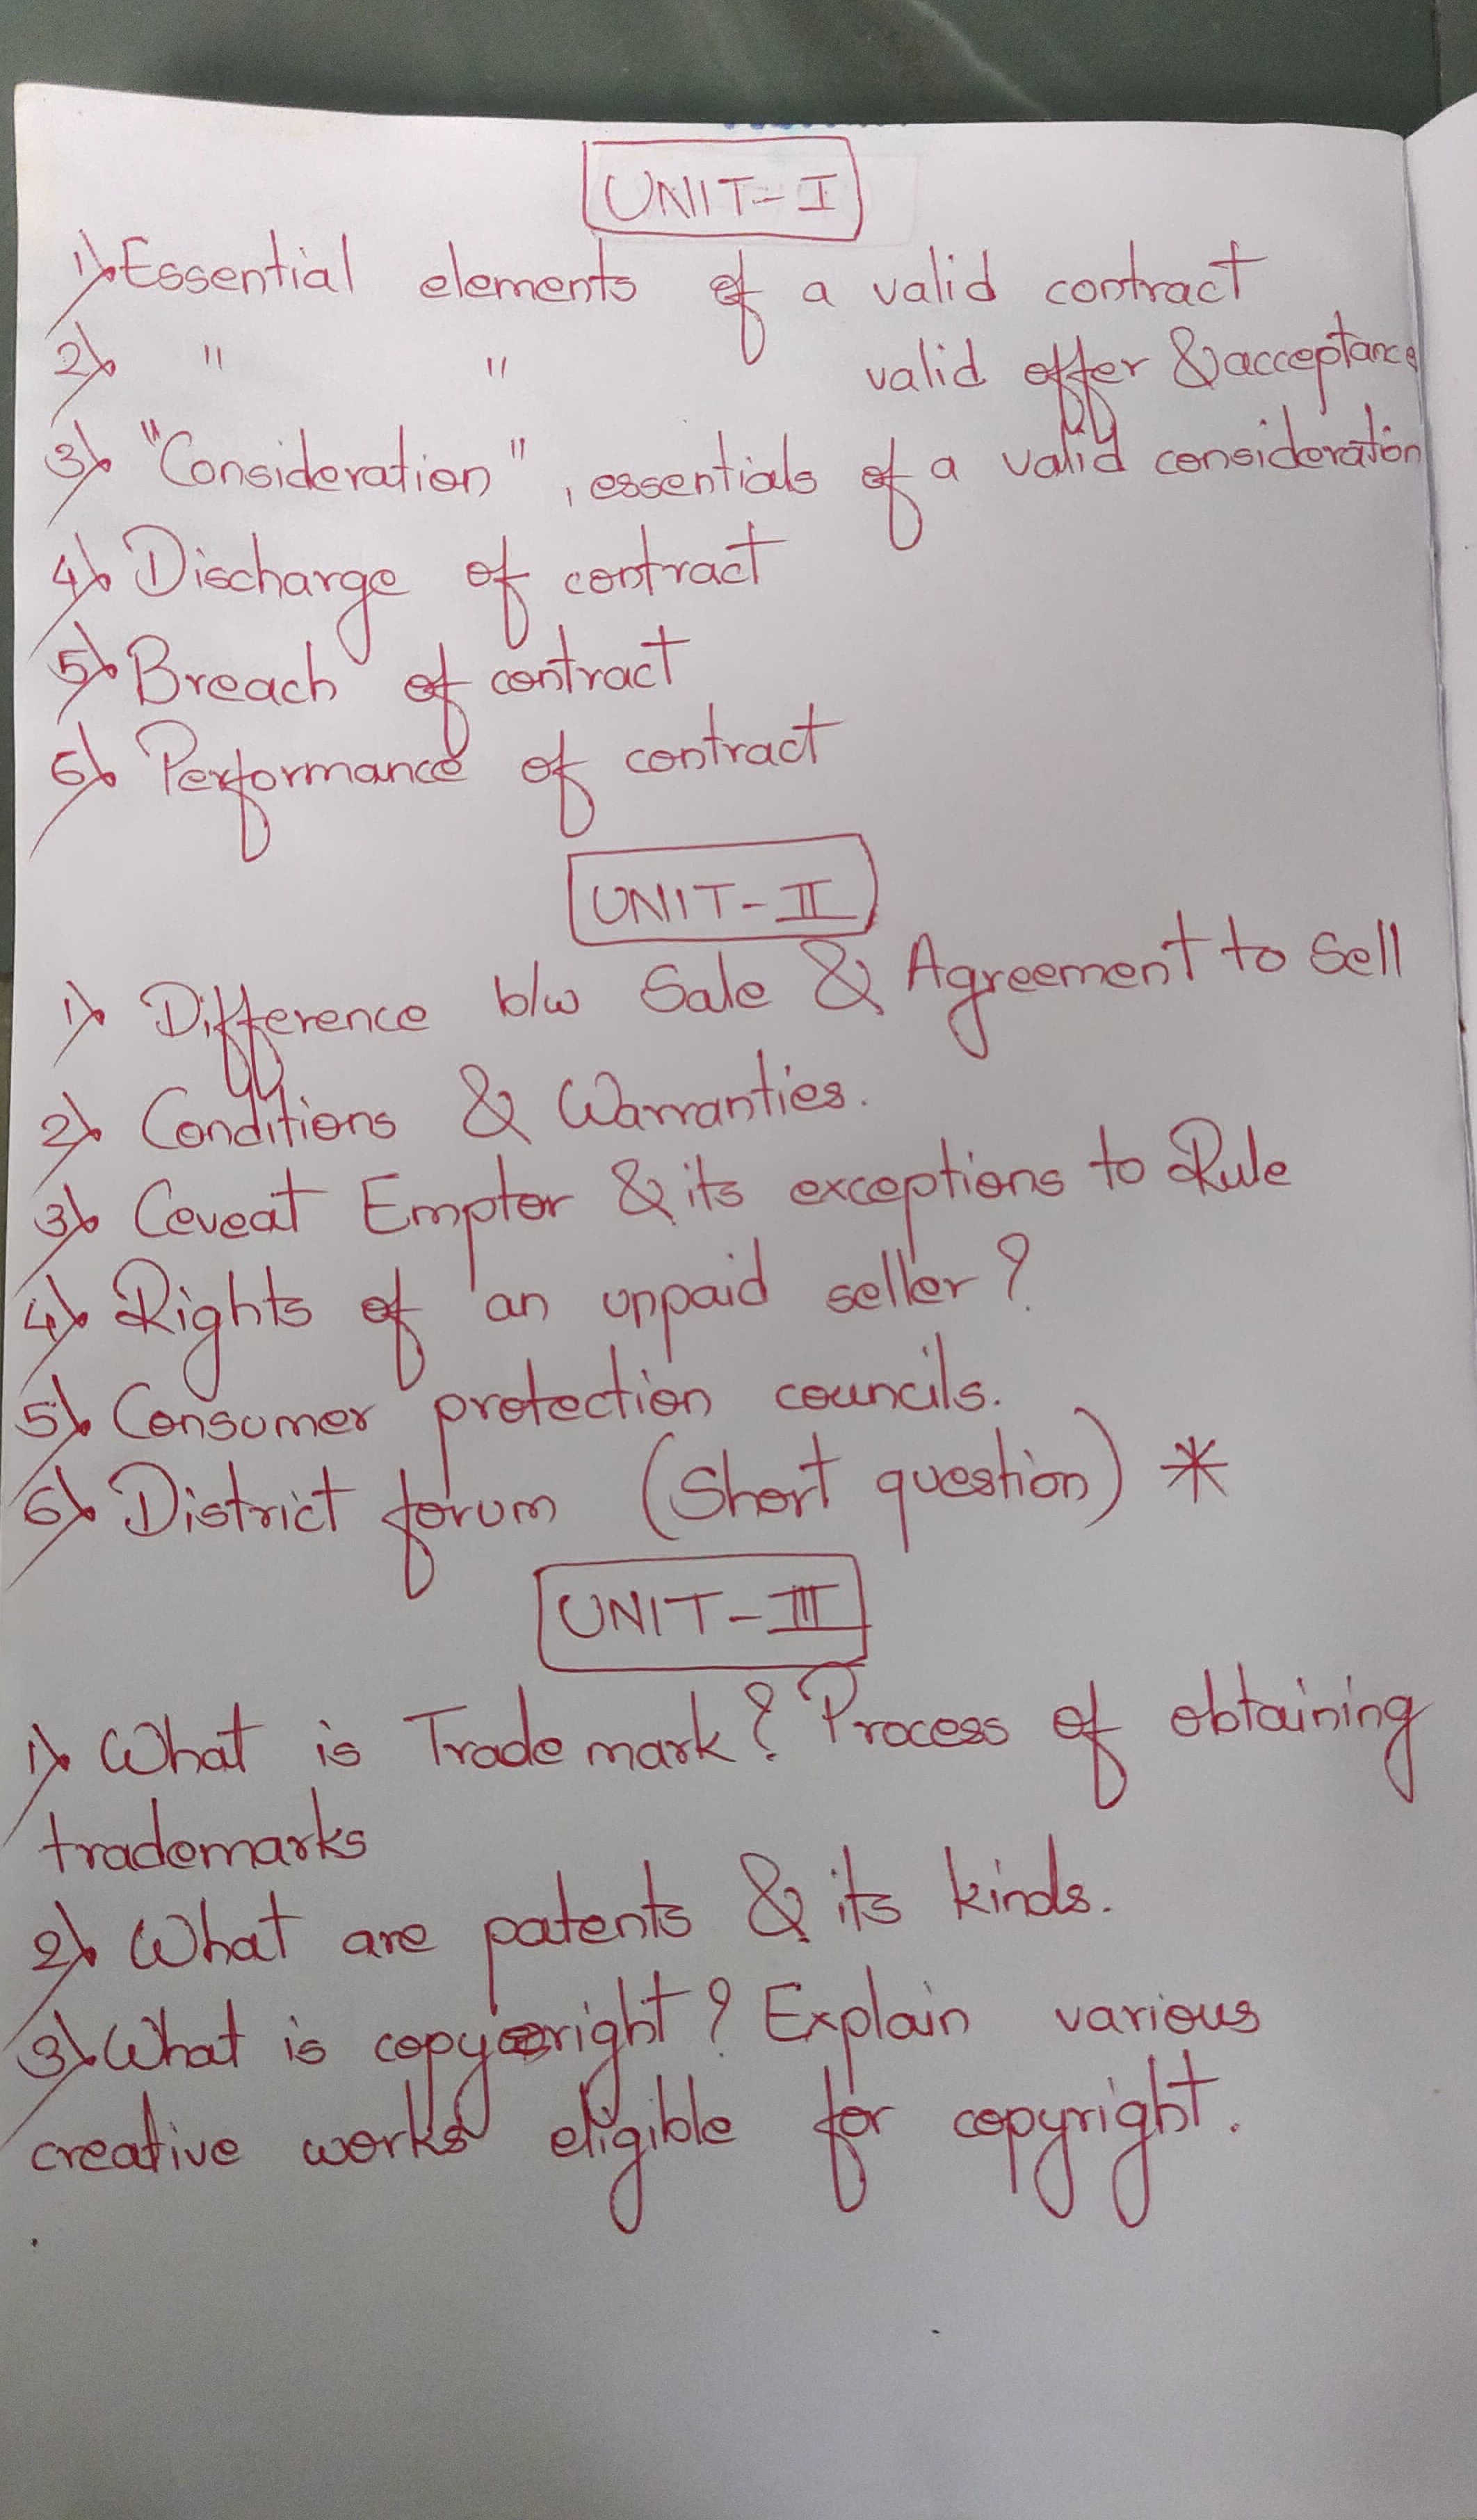 UNIT-I
1) Essential elements of a valid contract
2) " " valid offer & acceptance
3) "Consideration", essentials of a valid consideration
4) Discharge of contract
5) Breach of contract
6) Performance of contract
UNIT-II
1) Difference b/w Sale & Agreement to Sell
2) Conditions & Warranties.
3) Ceveat Emptor & its exceptions to Rule
4) Rights of an unpaid seller?
5) Consumer protection councils.
6) District forum (Short question) *
UNIT-III
1) What is Trade mark? Process of obtaining
trademarks
2) What are patents & its kinds.
3) What is copyright? Explain various
creative works eligible for copyright.